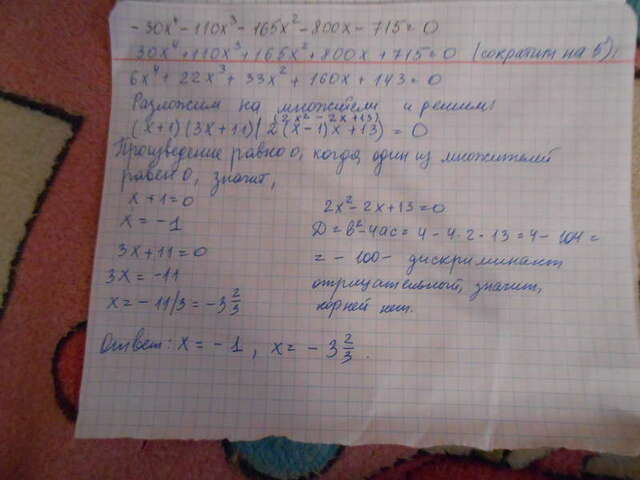 -30x⁴-110x³-165x²-800x-715=0
30x⁴+110x³+165x²+800x+715=0 (сократим на 5);
6x⁴+22x³+33x²+160x+143=0
Разложим на множители и решим:
(2x²-2x+13)
(x+1)(3x+11)(2(x-1)x+13)=0
Произведение равно 0, когда один из множителей
равен 0, значит,
x+1=0
x=-1
3x+11=0
3x=-11
x=-11/3=-3 2/3
2x²-2x+13=0
D=b²-4ac=4-4·2·13=4-104=
=-100- дискриминант
отрицательный, значит,
корней нет.
Ответ: x=-1, x=-3 2/3.